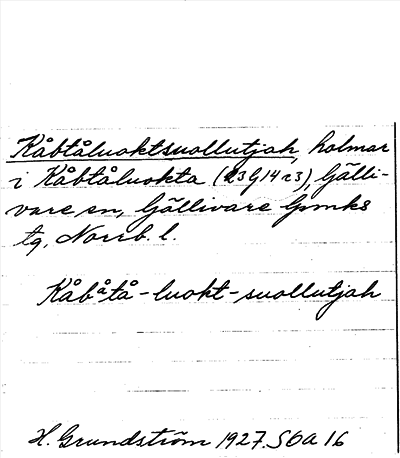 Kåbtåluoktsuollutjah, holmar
i Kåbtåluokta (23G14c3), Gälli-
vare sn, Gällivare lpmks
tg, Norrb. l.
Kåbåtå-luokt-suollutjah
H. Grundström 1927. SOa 16